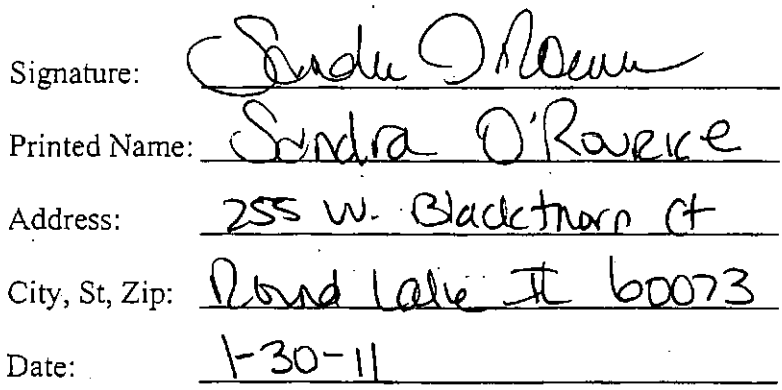 Signature: Sandra O'Rourke
Printed Name: Sandra O'Rourke
Address: 255 W. Blackthorn Ct
City, St, Zip: Round Lake IL 60073
Date: 1-30-11